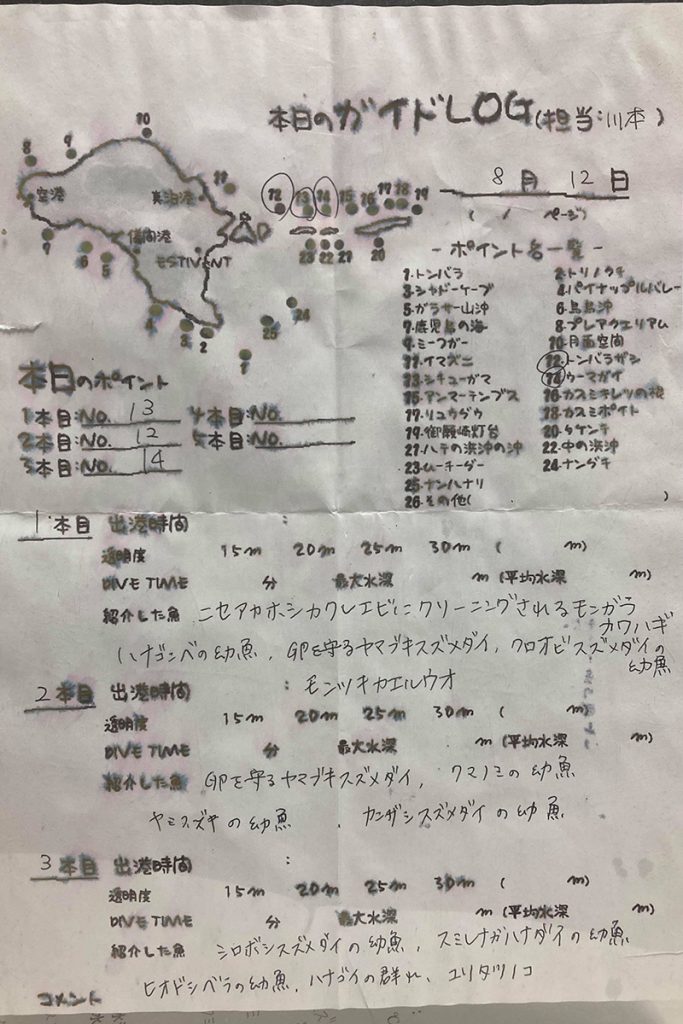 本日のガイドLOG(担当:川本 )
8月 12日
( / ページ)
10
9
8
空港
真泊港
11
12 13 14 15 16 17 18 19
7
儀間港
6
5
ESTIVENT
23 22 21
20
4
3
2
25
24
1
- ポイント名一覧 -
1.トンバラ 2.トリノクチ
3.シャドーケーブ 4.パイナップルバレー
5.ガラサー山沖 6.鳥島沖
7.鹿児島の海 8.プレアクエリアム
9.ミーフガー 10.月面空間
11.イマズニ 12.トンバラザシ
13.シチューガマ 14.ウーマガイ
15.アンマーテンブス 16.カスミキレツの根
17.リュウダウ 18.カスミポイト
19.御願崎灯台 20.タケンチ
21.ハテの浜沖の沖 22.中の浜沖
23.ムーチーダー 24.ナンダチ
25.ナンハナリ
26.その他( )
本日のポイント
1本目:No. 13 4本目:No.
2本目:No. 12 5本目:No.
3本目:No. 14
1本目 出港時間 :
透明度 15m 20m 25m 30m ( m)
DIVE TIME 分 最大水深 m (平均水深 m)
紹介した魚 ニセアカホシカクレエビにクリーニングされるモンガラ
カワハギ
ハナゴンベの幼魚, 卵を守るヤマブキスズメダイ, クロオビスズメダイの
幼魚
モンツキカエルウオ
2本目 出港時間 :
透明度 15m 20m 25m 30m ( m)
DIVE TIME 分 最大水深 m (平均水深 m)
紹介した魚 卵を守るヤマブキスズメダイ, クマノミの幼魚
ヤミスズキの幼魚 , カンザシスズメダイの幼魚
3本目 出港時間 :
透明度 15m 20m 25m 30m ( m)
DIVE TIME 分 最大水深 m (平均水深 m)
紹介した魚 シロボシスズメダイの幼魚, スミレナガハナダイの幼魚
ヒオドシベラの幼魚, ハナゴイの群れ, ユリタツノコ
コメント